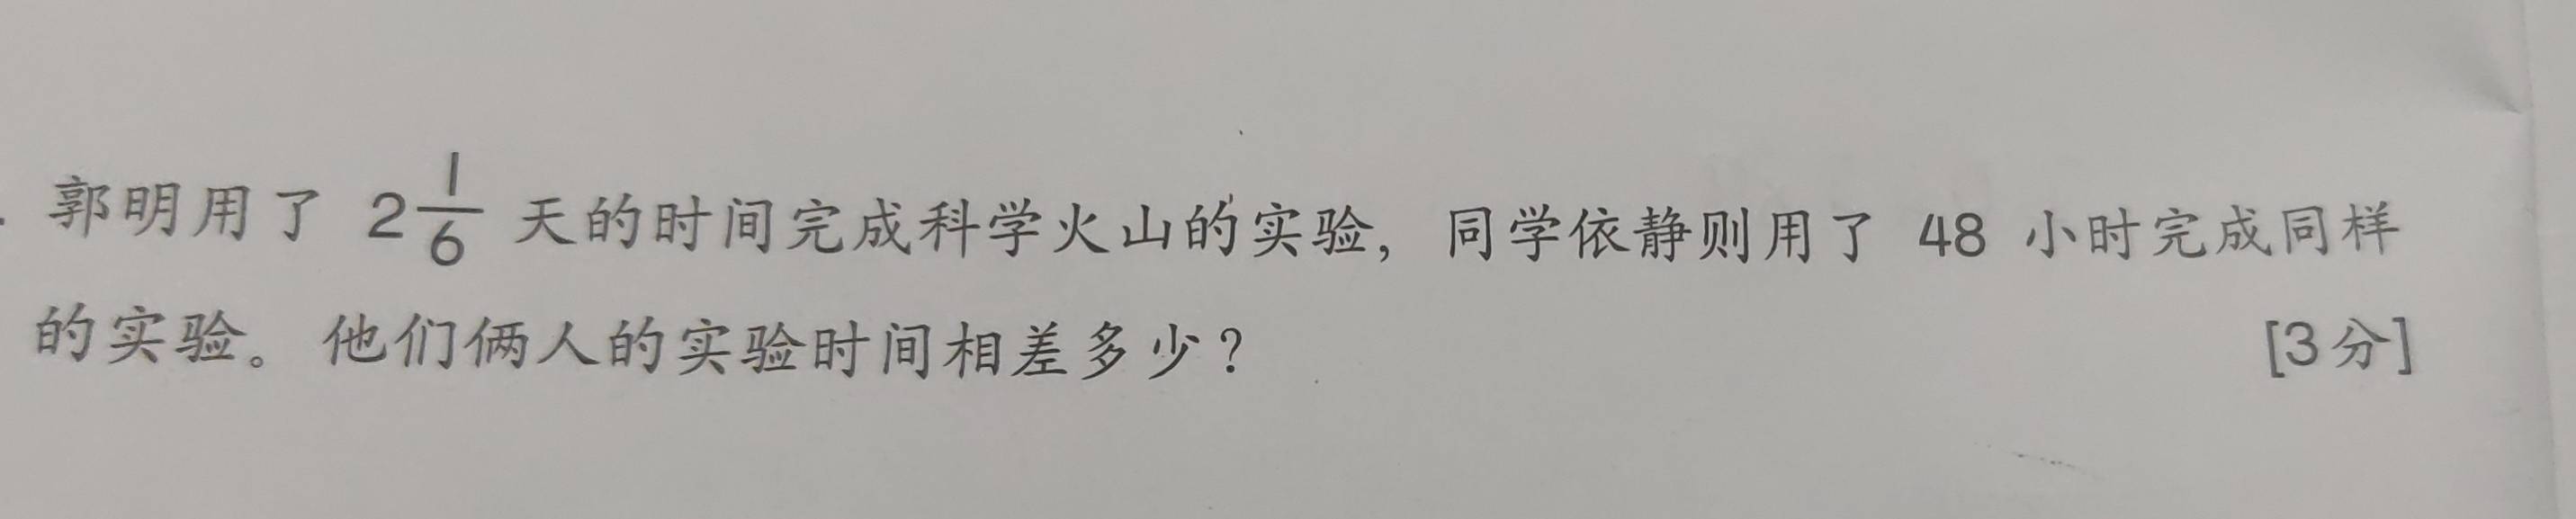 郭明用了 2 1/6 天的时间完成科学火山的实验，同学依静则用了 48 小时完成同样
的实验。他们俩人的实验时间相差多少？ [3分]